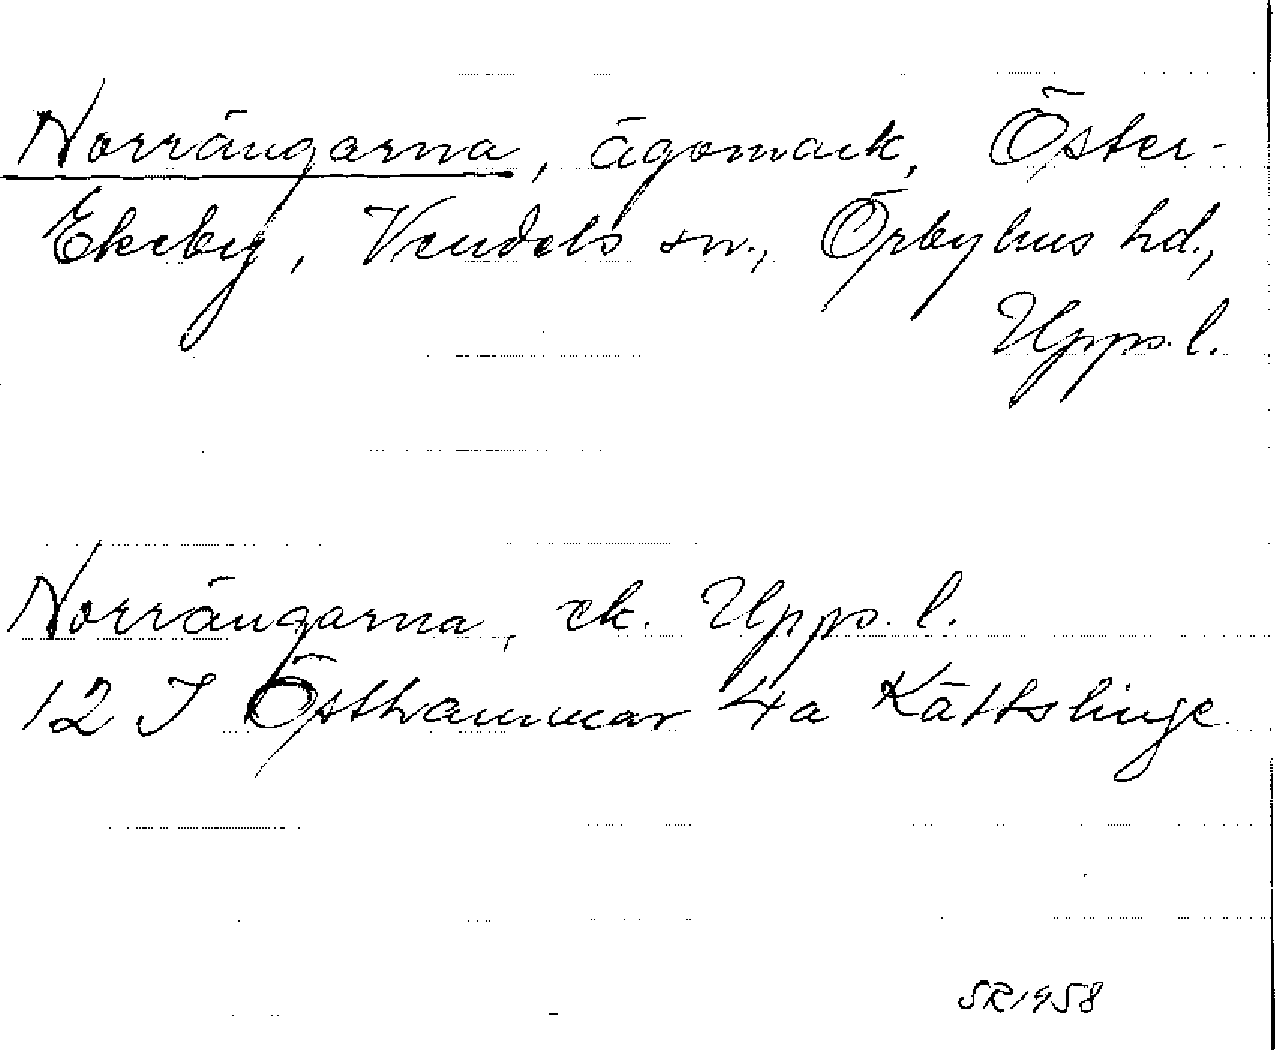 Norrängarna, ägomark, Öster-
Ekeby, Vendels sn., Örbyhus hd.,
Upps. l.
Norrängarna, ek. Upps. l.
12 I Östhammar 4a Kättslinge
SR 1958